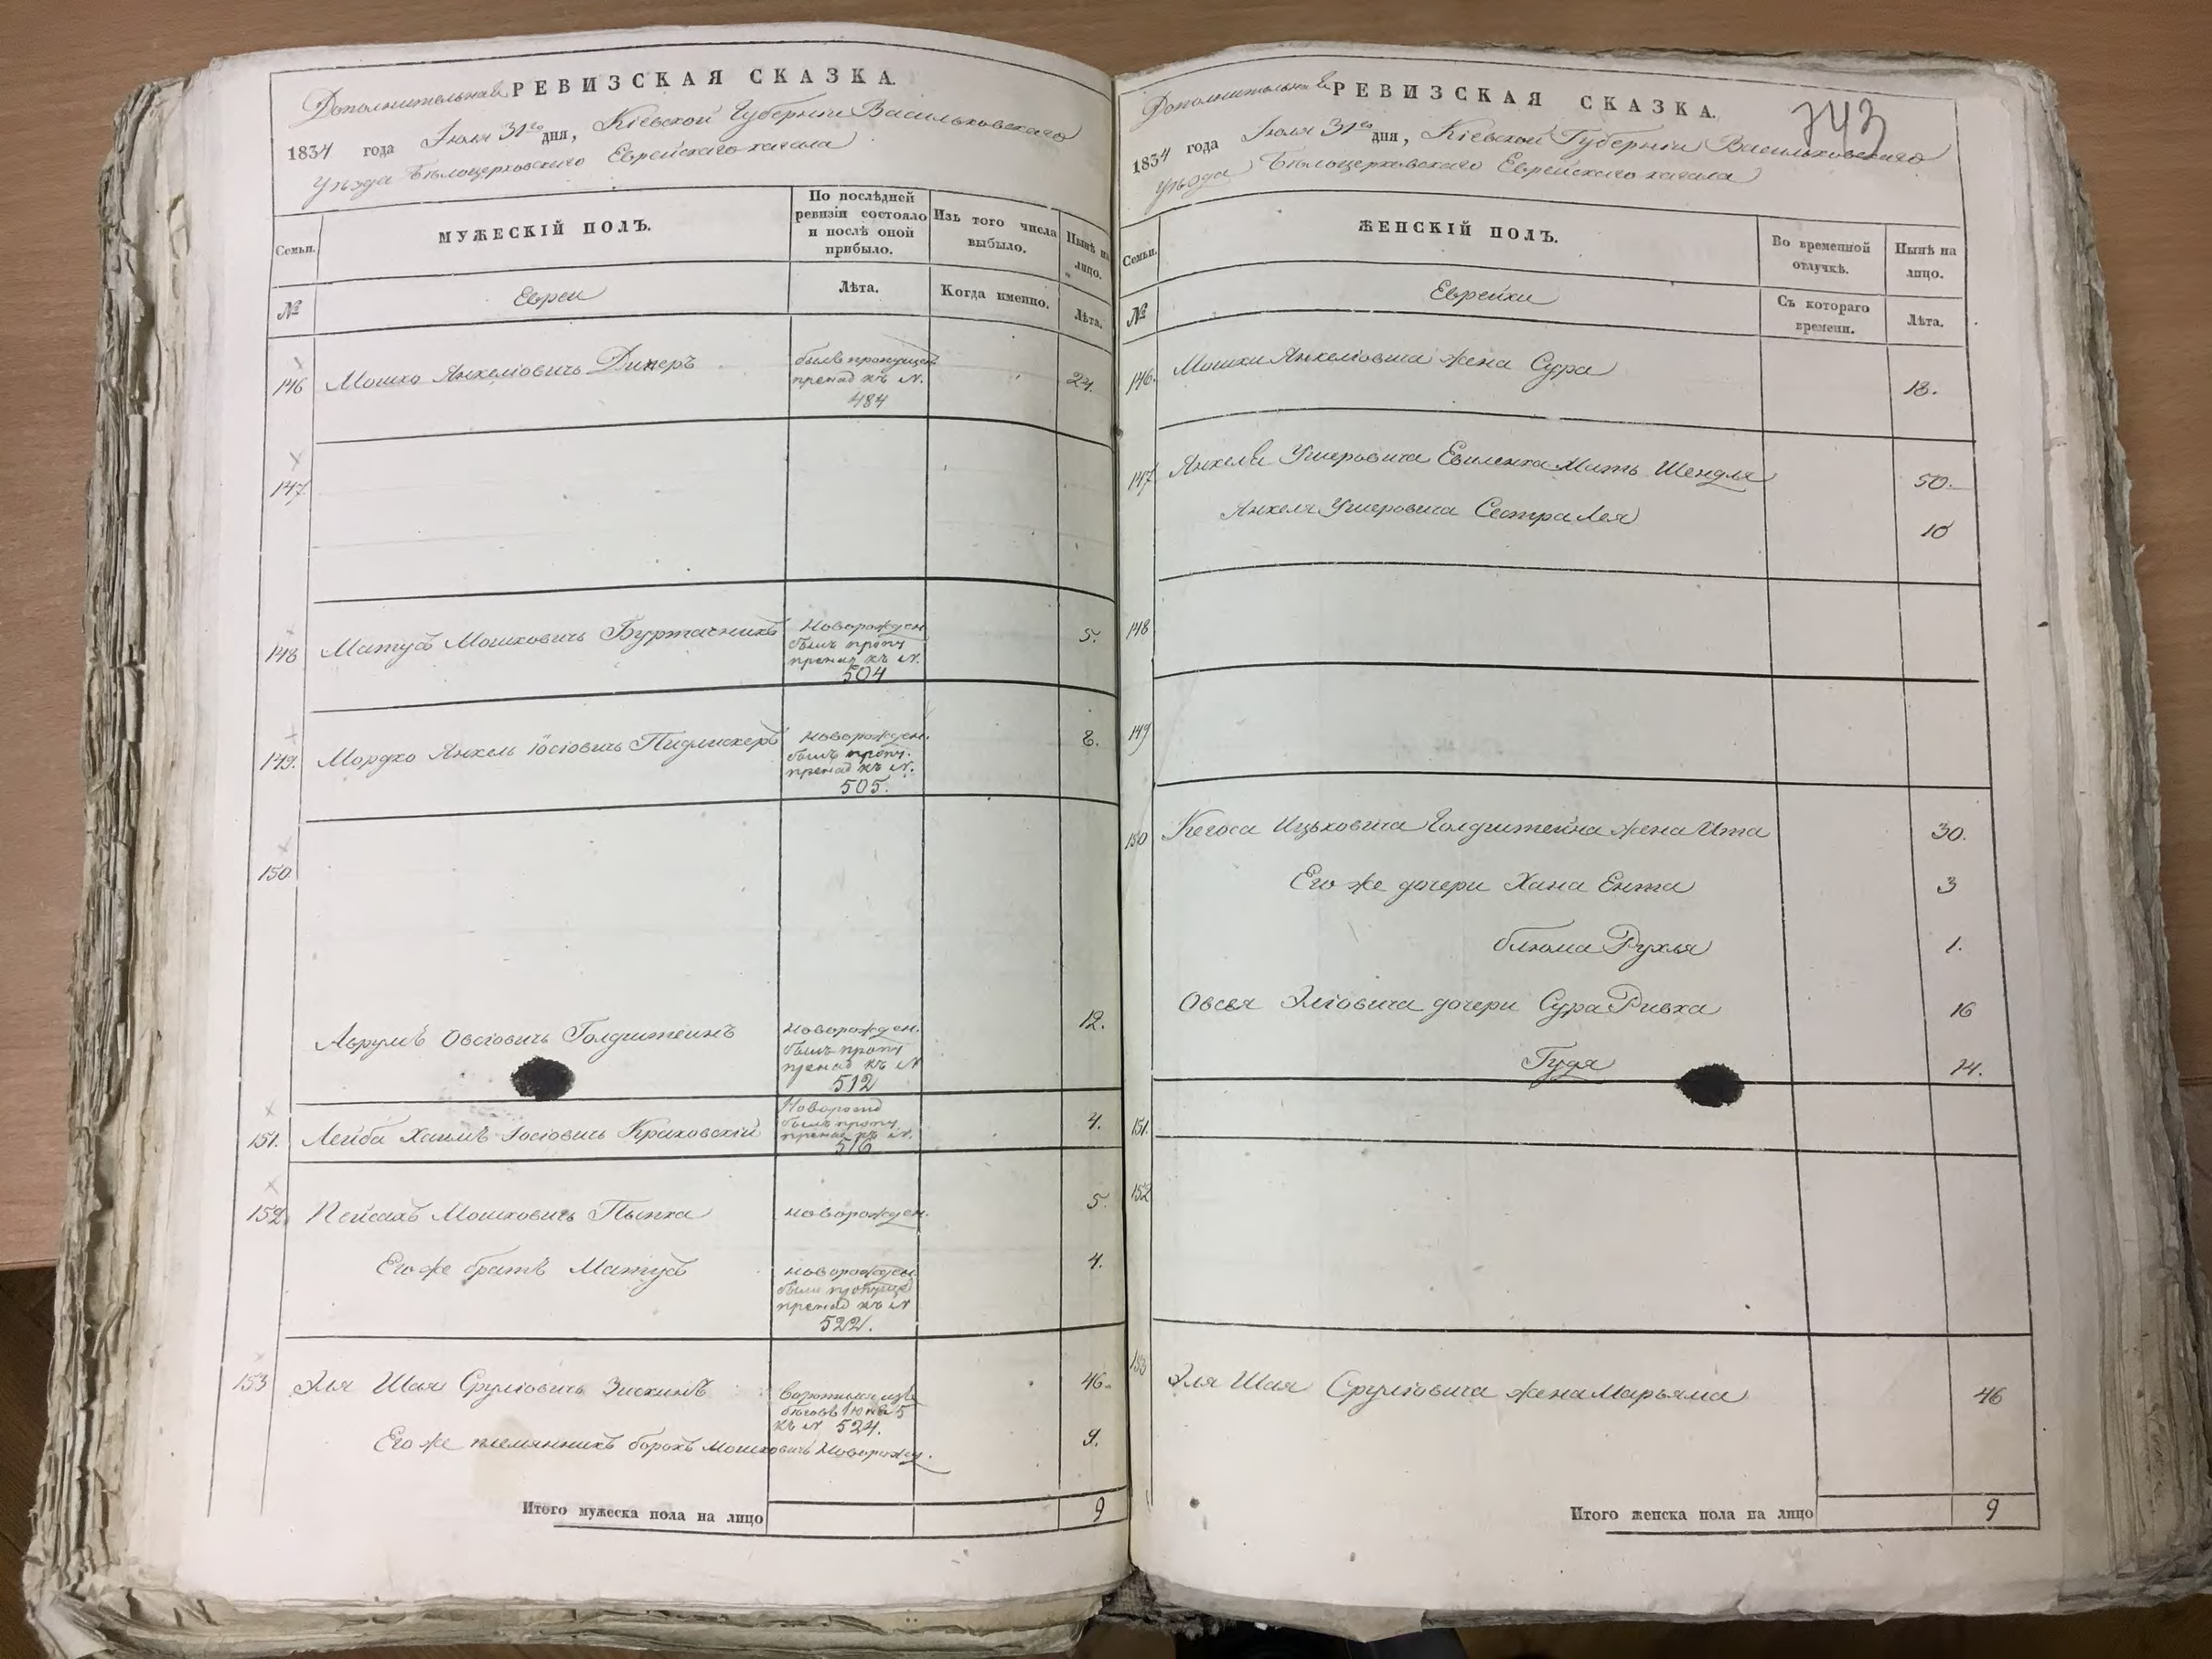 Дополнительная РЕВИЗСКАЯ СКАЗКА.
1834 года Іюля 31го дня, Кіевской Губерніи Васильковскаго
Уѣзда Бѣлоцерковскаго Еврейскаго кагала
Семьи.
МУЖЕСКІЙ ПОЛЪ.
По послѣдней ревизіи состояло и послѣ оной прибыло.
Изъ того числа выбыло.
Нынѣ на лицо.
№
Евреи
Лѣта.
Когда именно.
Лѣта.
146 Мошко Янкеліовичъ Динеръ
былъ пропущен
пренад къ N.
484
24.
147.
148 Матусъ Мошковичъ Буртачникъ
Новорожден
былъ проп
пренад къ N.
504
5.
149. Мордко Янкель Іосіовичъ
Новорожден.
былъ проп.
пренад къ N.
505.
8.
150
Аврумъ Овсіовичъ Голдштеинъ
Новорожден.
былъ проп
пренад къ N
512
12.
151. Лейба Хаимъ Іосіовичъ Краковскій
Новорожд
былъ проп
пренад къ N.
516
4.
152. Пейсахъ Мошковичъ Пынка
новорожден.
5
Его же братъ Матусъ
новорожден
были пропущ
пренад къ N
522.
4.
153 Эля Шая Сруліовичъ Зискинъ
бѣговъ 5
къ N 524.
46.
Его же племянникъ Борохъ Мошковичъ Новорожд.
9.
Итого мужеска пола на лицо
9
743
Дополнительная РЕВИЗСКАЯ СКАЗКА.
1834 года Іюля 31го дня, Кіевской Губерніи Васильковскаго
Уѣзда Бѣлоцерковскаго Еврейскаго кагала
Семьи.
ЖЕНСКІЙ ПОЛЪ.
Во временной отлучкѣ.
Нынѣ на лицо.
№
Еврейки
Съ котораго времени.
Лѣта.
146. Мошки Янкеліовича жена Сура
18.
147 Янкеля Ушеровича Евиленка Мать Шендля
50.
Янкеля Ушеровича Сестра Лея
10
148
149
150 Ицьковича Голдштейна жена Ита
30.
Его же дочери Хана Ента
3
Блюма Рухля
1.
Овсея Эліовича дочери Сура Ривка
16
Гудя
14.
151.
152
153 Эля Шая Сруліовича жена Марьяма
46
Итого женска пола на лицо
9